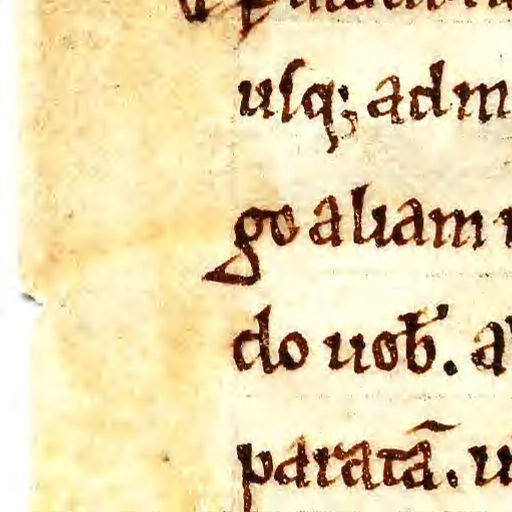 usq; ad m
go aliam
do uob. a
parata.